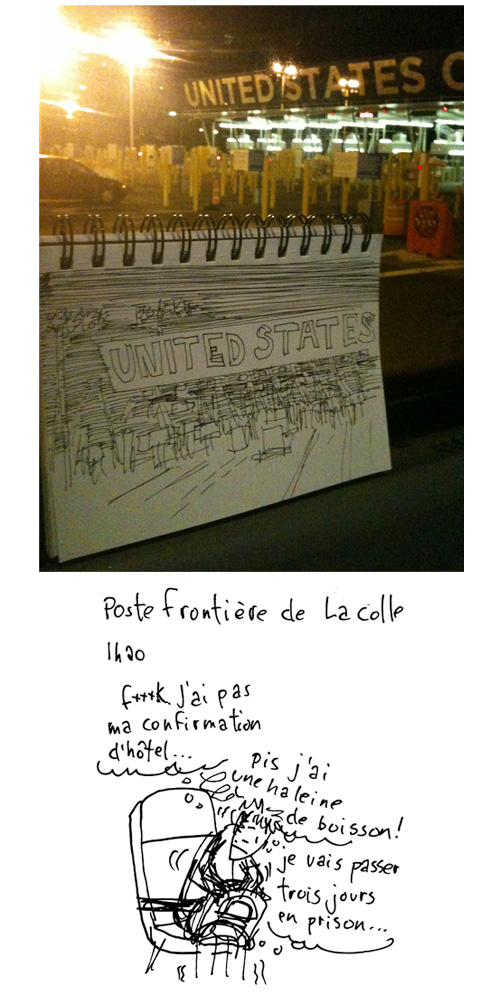 UNITED STATES C
UNITED STATES
Poste frontière de Lacolle
1h20
f***k j'ai pas
ma confirmation
d'hôtel...
Pis j'ai
une haleine
de boisson!
je vais passer
trois jours
en prison...